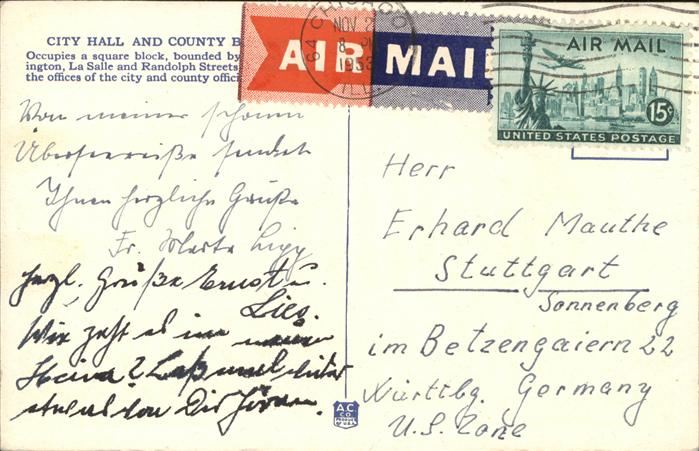 CITY HALL AND COUNTY B
Occupies a square block, bounded by
ington, La Salle and Randolph Streets
the offices of the city and county offici
AIR MAIL
CHICAGO
NOV 2
8 PM
1953
ILL
AIR MAIL
15¢
UNITED STATES POSTAGE
Von meiner schönen
Überseereise sendet
Ihnen herzliche Grüße
Fr. Marta Lipp
herzl. Grüße Ernst u.
Lies.
Wie geht es im neuen
Heim? Laß mal
etwas von Dir hören.
Herr
Erhard Mauthe
Stuttgart
Sonnenberg
im Betzengaiern 22
Württbg. Germany
U.S. Zone
A.C.
CO.